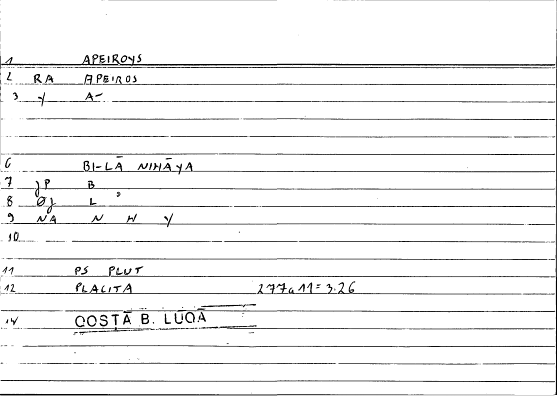 1 APEIROYS
2 RA APEIROS
3 Y A-
6 BI-LĀ NIHĀYA
7 JP B
8 ØJ L ʾ
9 NA N H Y
10
11 PS PLUT
12 PLACITA 277a11=3.26
14 QOSṬĀ B. LŪQĀ